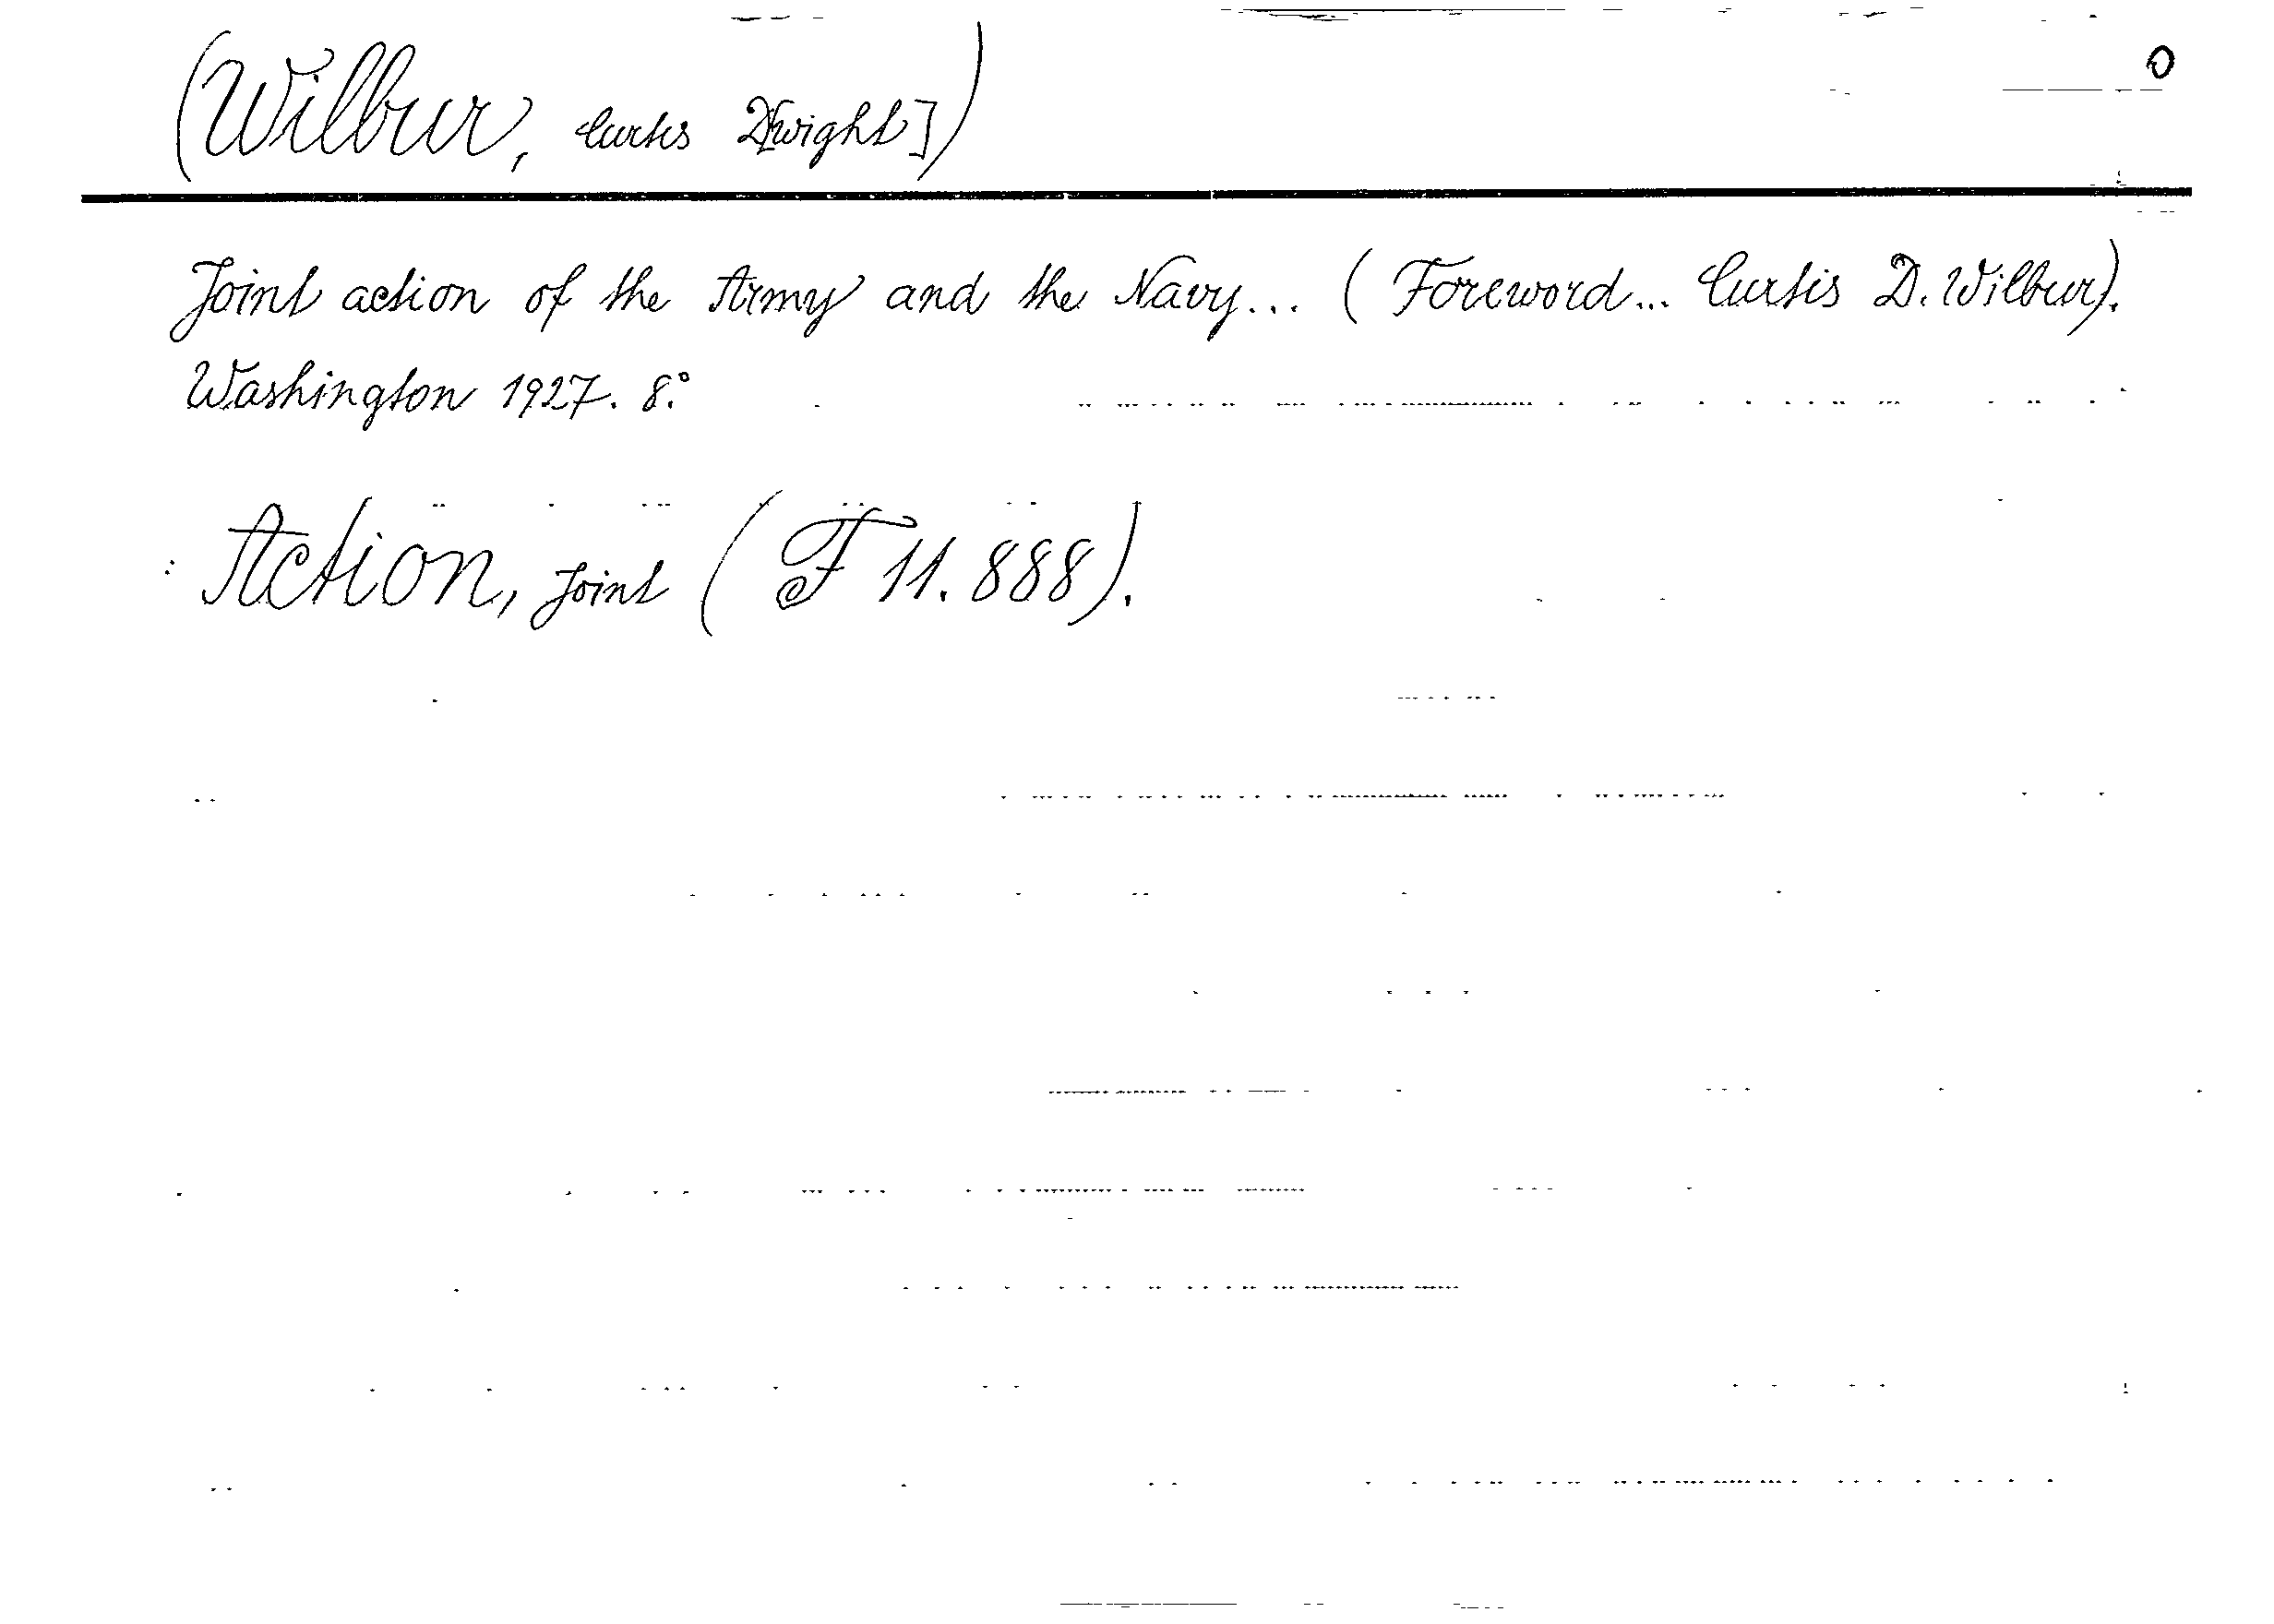 (Wilbur, Curtis D[wight])
Joint action of the Army and the Navy... (Foreword... Curtis D. Wilbur).
Washington 1927. 8.°
Action, Joint (F 11.888).